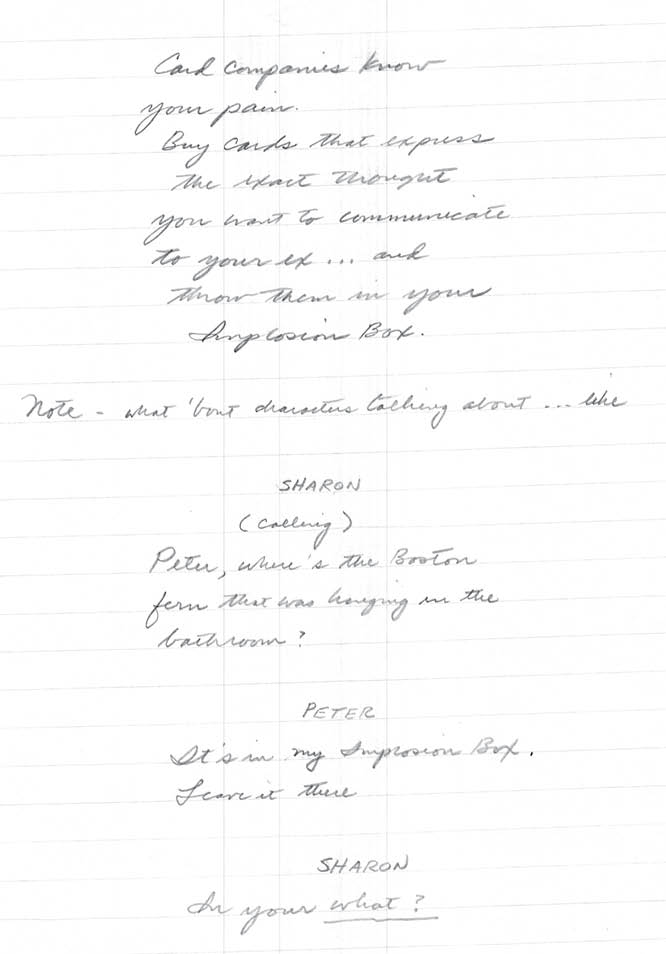 Card companies know
your pain.
Buy cards that express
the exact thought
you want to communicate
to your ex ... and
throw them in your
Implosion Box.
Note - what 'bout characters talking about ... like
SHARON
(calling)
Peter, where's the Boston
fern that was hanging in the
bathroom?
PETER
It's in my Implosion Box.
Leave it there
SHARON
In your what?